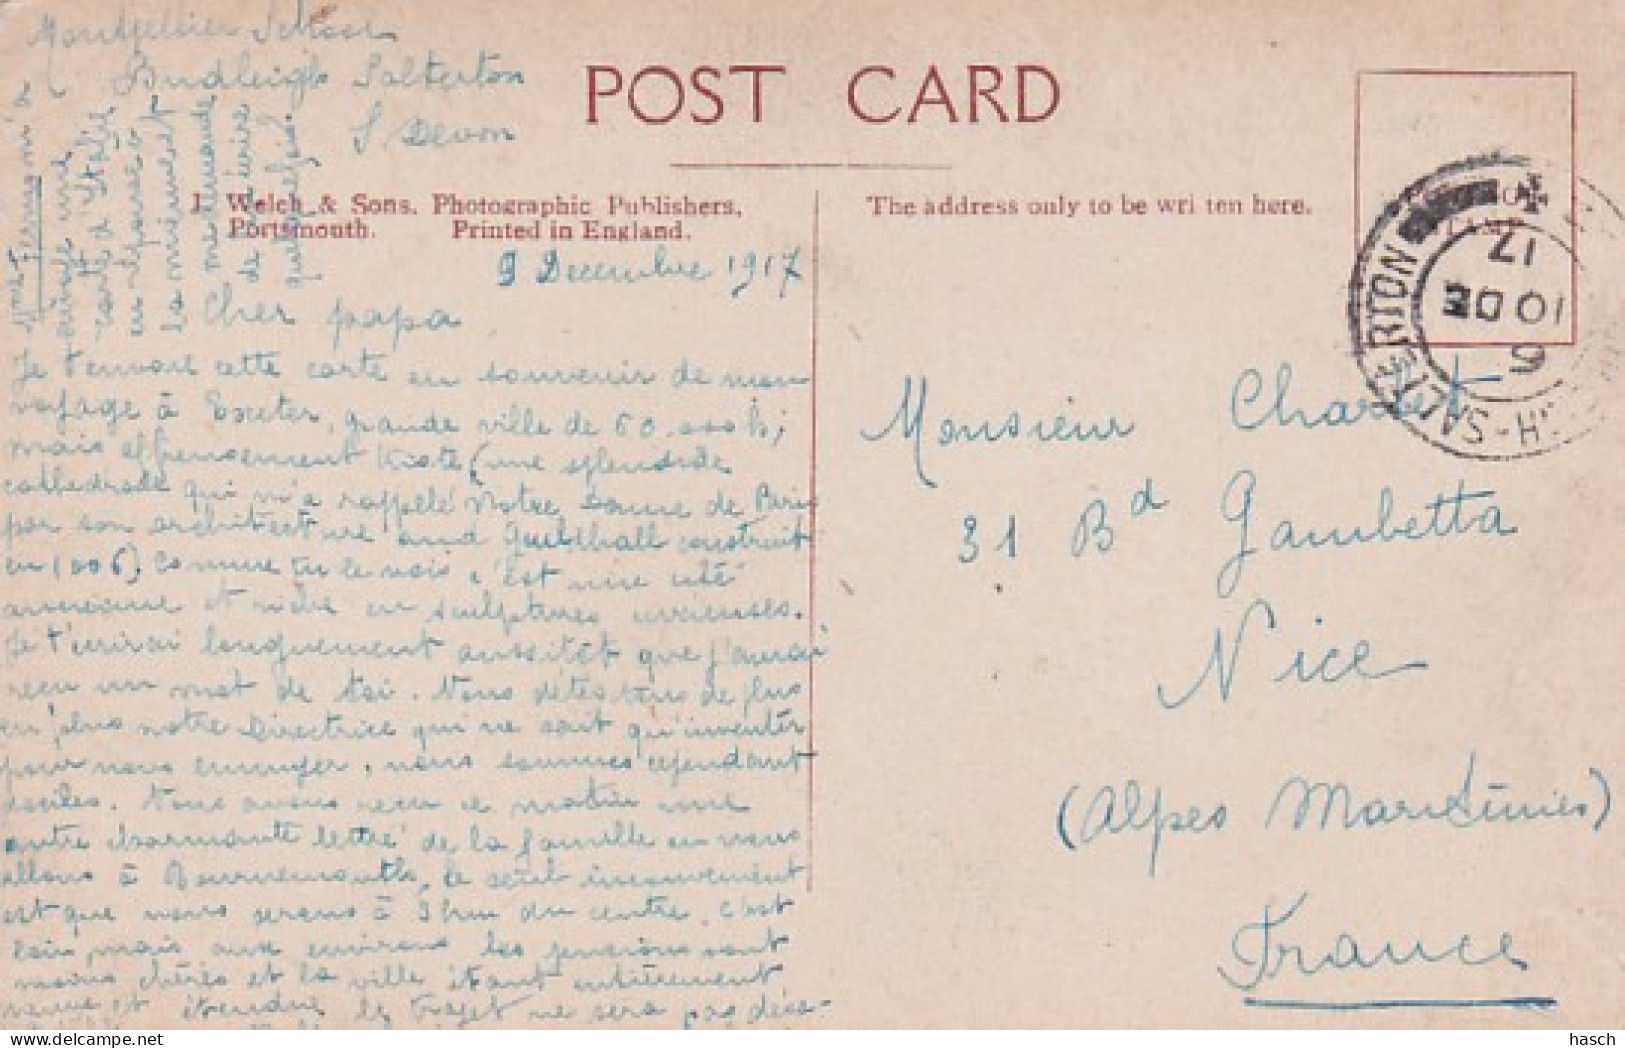 Montpellier School
Budleigh Salterton
S Devon
POST CARD
J. Welch & Sons, Photographic Publishers,
Portsmouth. Printed in England.
The address only to be written here.
9 Decembre 1917
Cher papa
Je t'envoie cette carte en souvenir de mon
voyage à Exeter, grande ville de 60.000 h;
mais affreusement triste (une splendide
cathedrale qui m'a rappelé Notre Dame de Paris
par son architecture and Guildhall construit
en 1006). Comme tu le vois c'est une cité
ancienne et riche en sculptures curieuses.
Je t'ecrirai longuement aussitôt que j'aurai
reçu un mot de toi. Nous détestons de plus
en plus notre Directrice qui ne sait qu'inventer
pour nous ennuyer, nous sommes cependant
dociles. Nous avons recu ce matin une
autre charmante lettre de la famille où nous
allons à Bournemouth, le seul inconvenient
est que nous serons à 3 km du centre. c'est
loin, mais aux environs les pensions sont
moins chères et la ville étant entièrement
neuve et étendue le trajet ne sera pas désa-
Mme Terrson m'a
envoyé une
carte d'Italie
en réponse à
la mienne et
me demande
de t'écrire
quelquefois.
Monsieur Charlet
31 Bd Gambetta
Nice
(Alpes Maritimes)
France
SALTERTON
6
10 DE
17
hasch